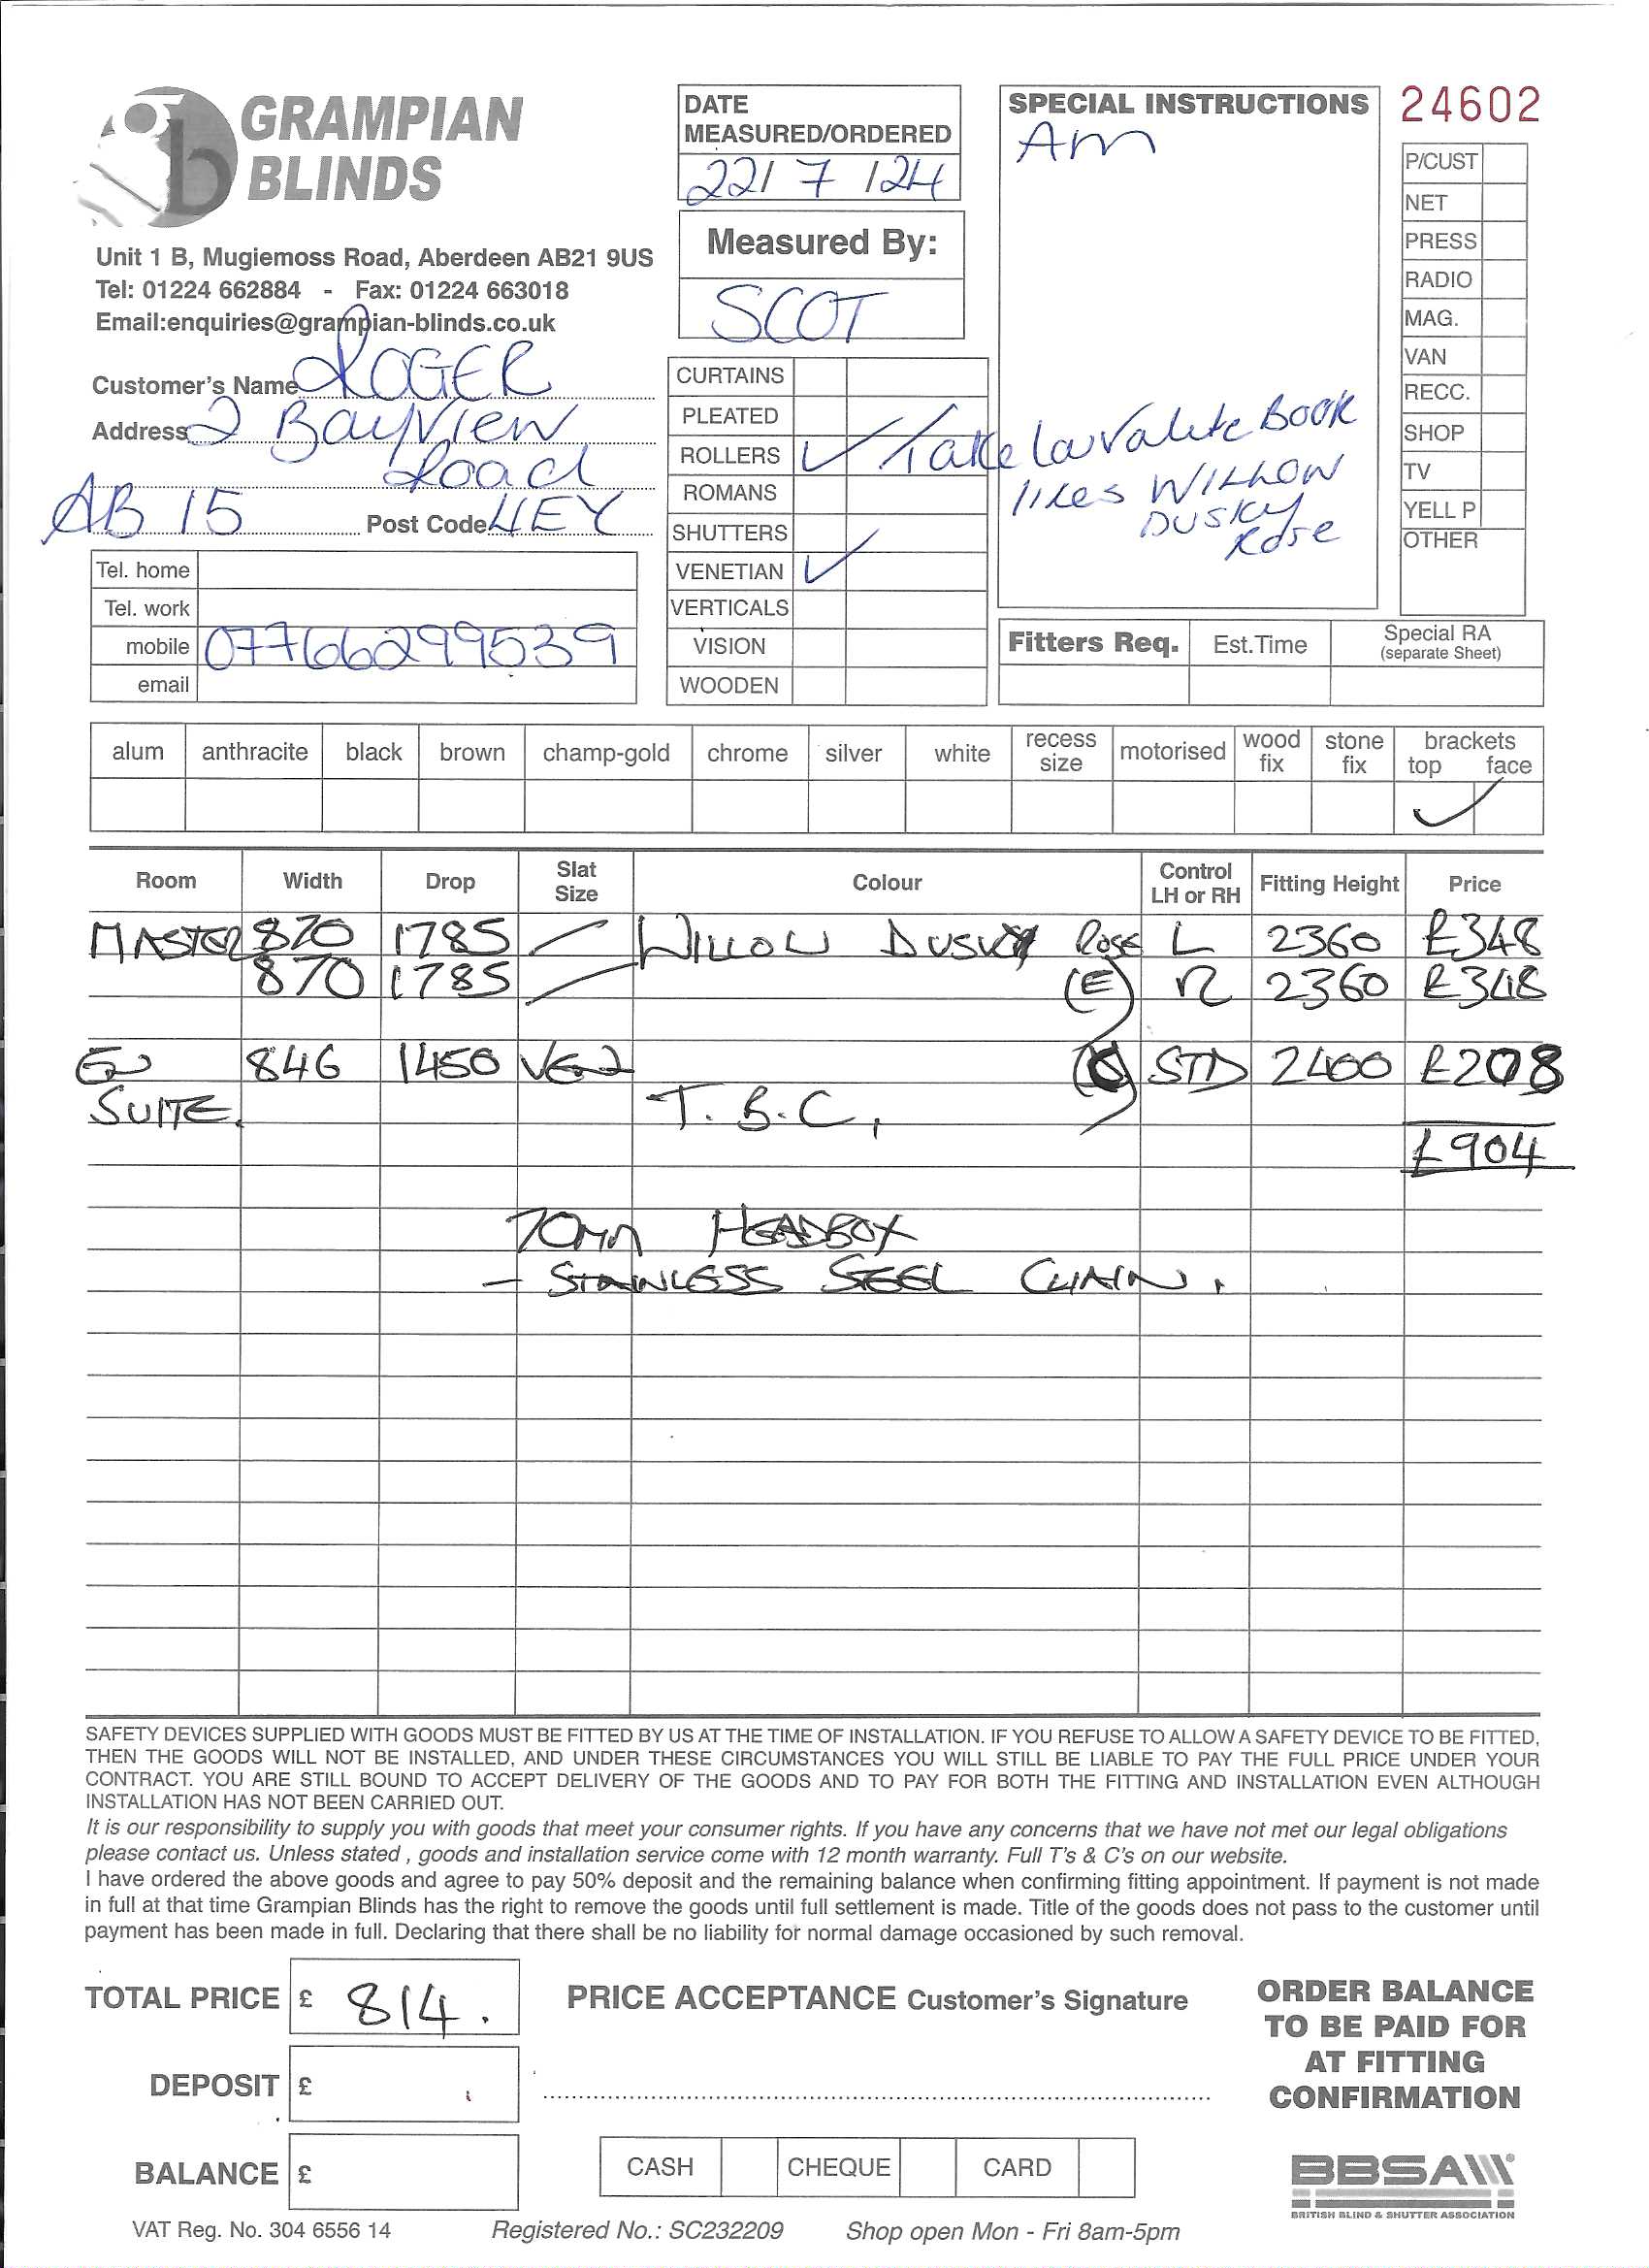 GRAMPIAN
BLINDS
Unit 1 B, Mugiemoss Road, Aberdeen AB21 9US
Tel: 01224 662884 - Fax: 01224 663018
Email:enquiries@grampian-blinds.co.uk
Customer's Name ROGER
Address 2 Bayview
Road
AB 15 Post Code 4EY
Tel. home
Tel. work
mobile 07766299539
email
DATE
MEASURED/ORDERED
22/ 7 /24
Measured By:
SCOT
CURTAINS
PLEATED
ROLLERS ✓
ROMANS
SHUTTERS
VENETIAN ✓
VERTICALS
VISION
WOODEN
SPECIAL INSTRUCTIONS
Am
Take Book
likes WILLOW
DUSKY
Rose
24602
P/CUST
NET
PRESS
RADIO
MAG.
VAN
RECC.
SHOP
TV
YELL P
OTHER
Fitters Req. Est.Time Special RA
(separate Sheet)
alum anthracite black brown champ-gold chrome silver white recess size motorised wood fix stone fix brackets top face
✓
Room Width Drop Slat Size Colour Control LH or RH Fitting Height Price
MASTER 870 1785 WILLOW DUSKY ROSE L 2360 £348
870 1785 (E) R 2360 £348
EN 846 1450 VEN STD 2400 £208
SUITE. T.B.C.
£904
70mm HEADBOX
- STAINLESS STEEL CHAIN.
SAFETY DEVICES SUPPLIED WITH GOODS MUST BE FITTED BY US AT THE TIME OF INSTALLATION. IF YOU REFUSE TO ALLOW A SAFETY DEVICE TO BE FITTED,
THEN THE GOODS WILL NOT BE INSTALLED, AND UNDER THESE CIRCUMSTANCES YOU WILL STILL BE LIABLE TO PAY THE FULL PRICE UNDER YOUR
CONTRACT. YOU ARE STILL BOUND TO ACCEPT DELIVERY OF THE GOODS AND TO PAY FOR BOTH THE FITTING AND INSTALLATION EVEN ALTHOUGH
INSTALLATION HAS NOT BEEN CARRIED OUT.
It is our responsibility to supply you with goods that meet your consumer rights. If you have any concerns that we have not met our legal obligations
please contact us. Unless stated , goods and installation service come with 12 month warranty. Full T's & C's on our website.
I have ordered the above goods and agree to pay 50% deposit and the remaining balance when confirming fitting appointment. If payment is not made
in full at that time Grampian Blinds has the right to remove the goods until full settlement is made. Title of the goods does not pass to the customer until
payment has been made in full. Declaring that there shall be no liability for normal damage occasioned by such removal.
TOTAL PRICE £ 814.
DEPOSIT £
BALANCE £
PRICE ACCEPTANCE Customer's Signature
CASH CHEQUE CARD
ORDER BALANCE
TO BE PAID FOR
AT FITTING
CONFIRMATION
BBSA
BRITISH BLIND & SHUTTER ASSOCIATION
VAT Reg. No. 304 6556 14 Registered No.: SC232209 Shop open Mon - Fri 8am-5pm